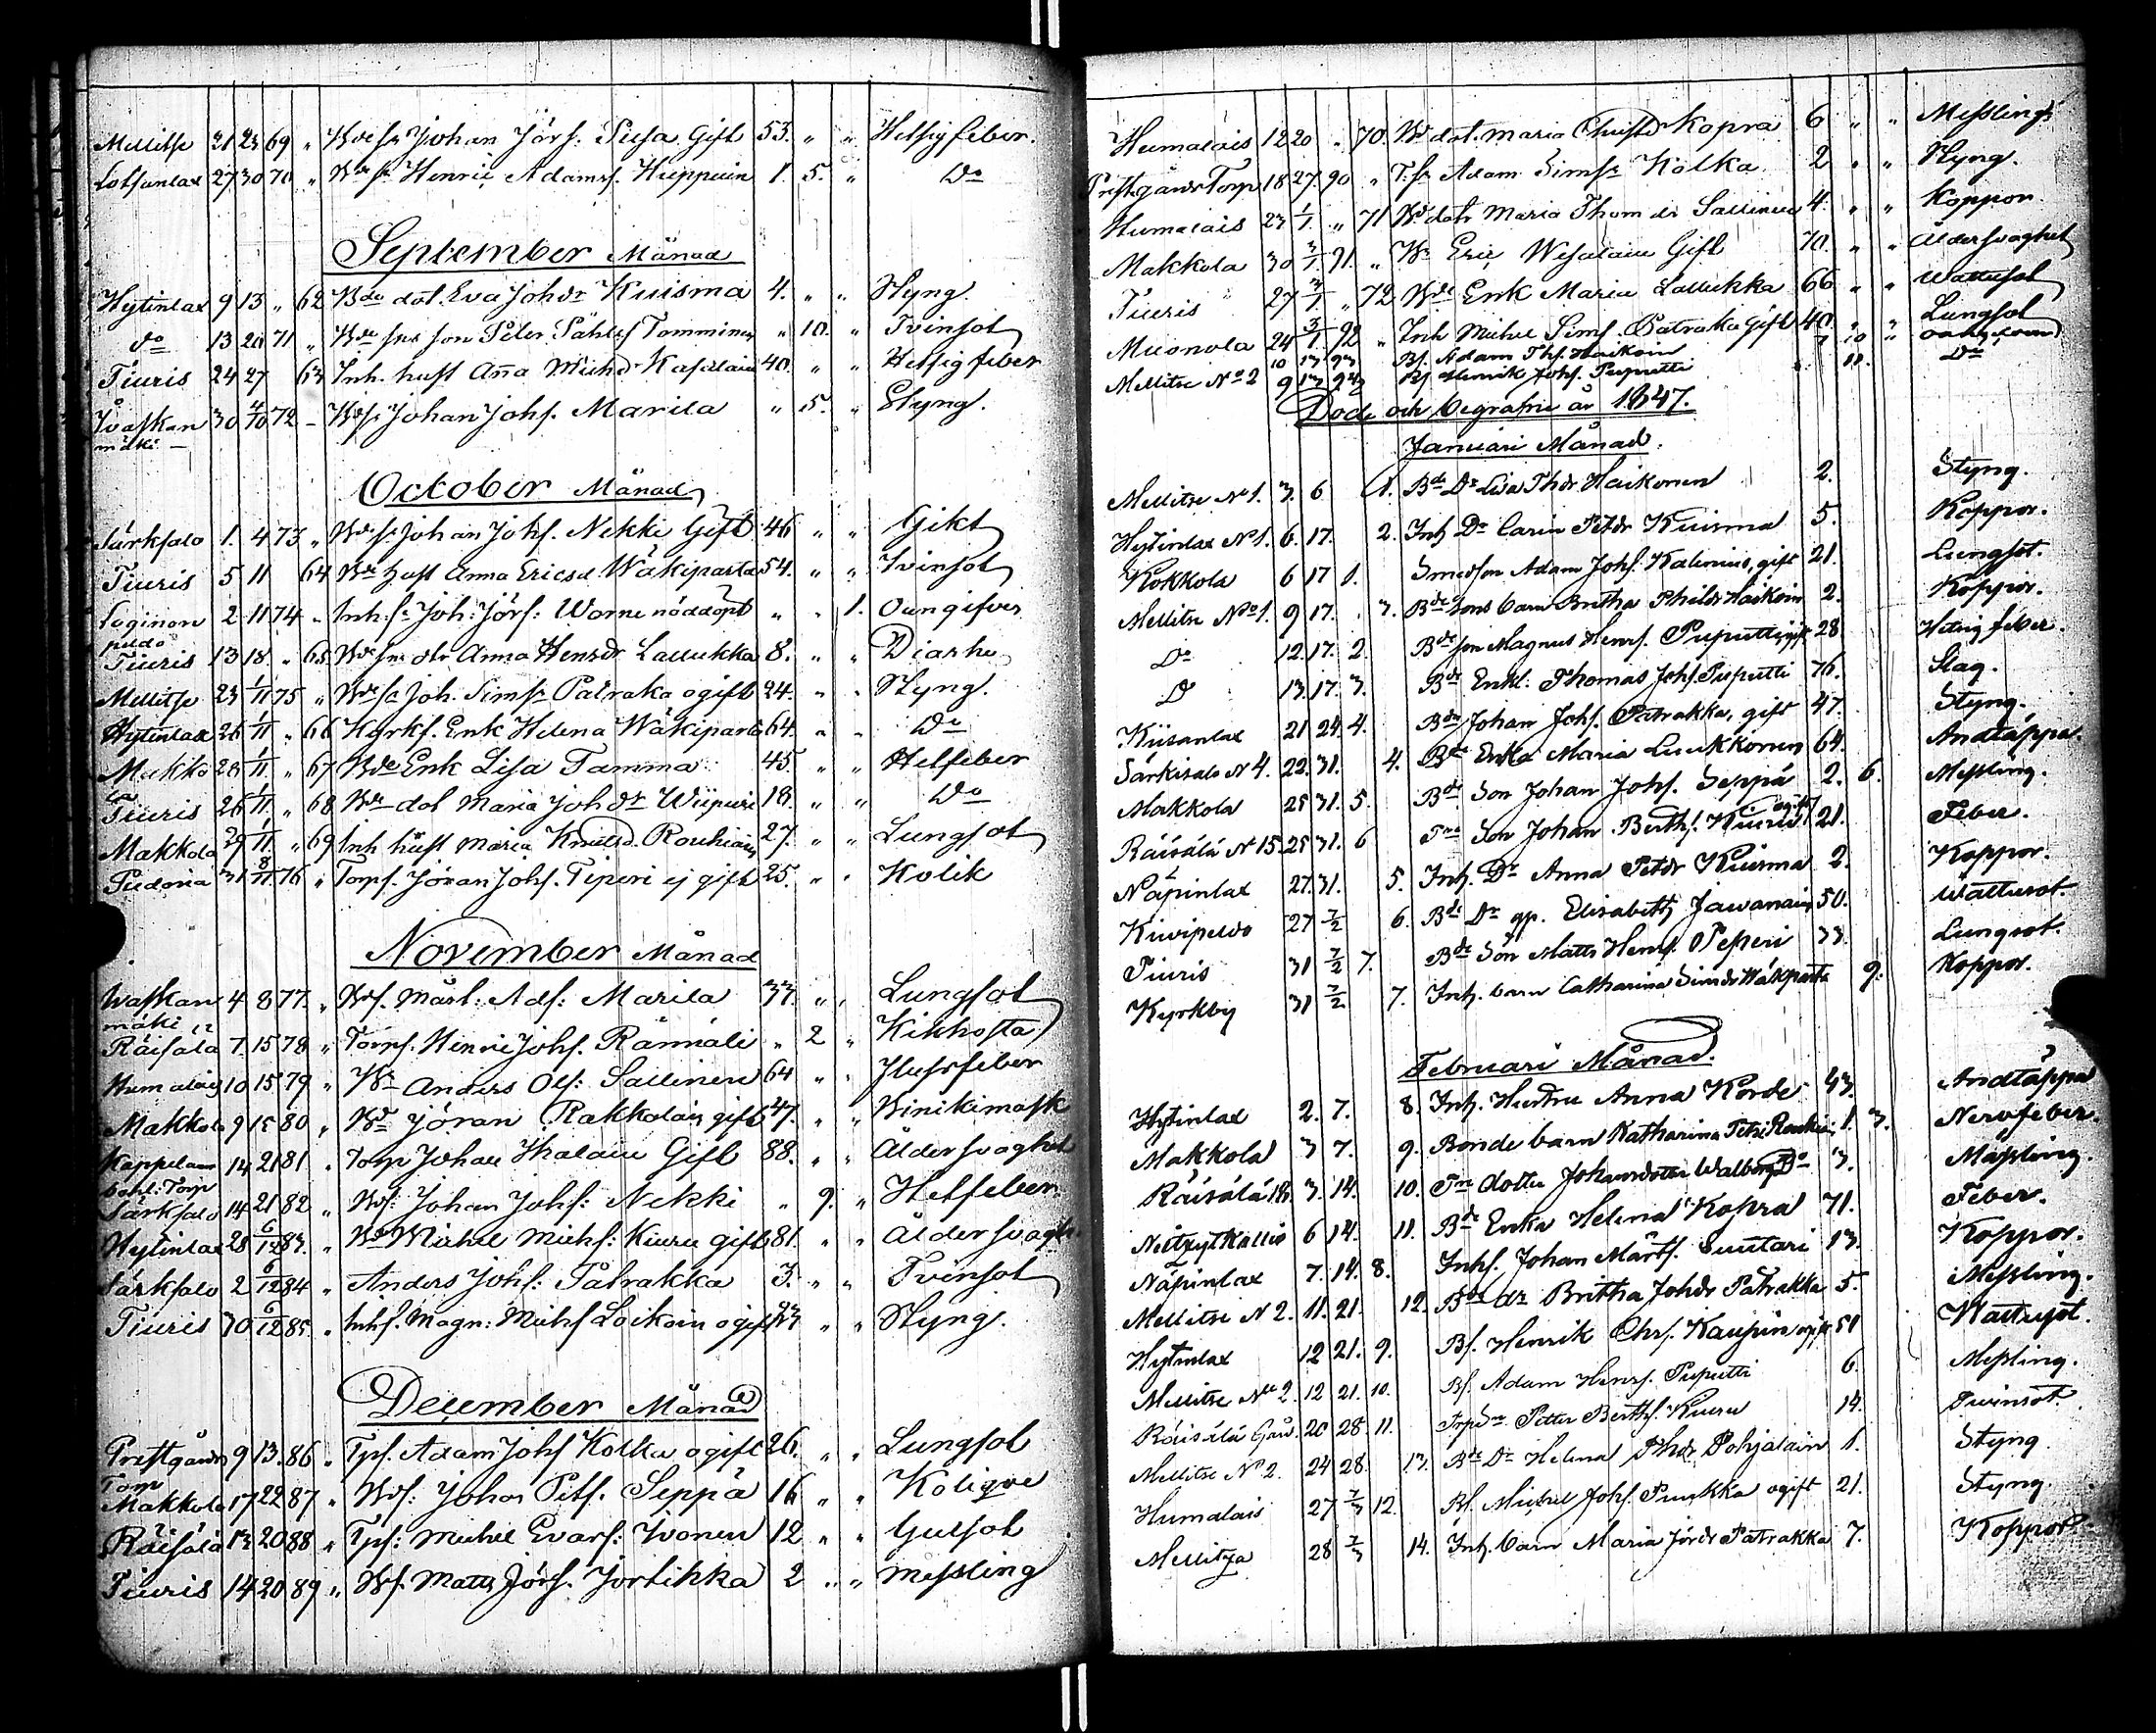 Mellitse 21 23 69 " Bdes Johan Jörs. Pusa Gift 53. " " Hetsigfeber.
Lotsunlax 27 30 70 " Bdes. Henric Adams. Huppuin 1. 5. " Do
September Månad
Hytinlax 9 13 " 62 Bde dot. Eva Johdr Kuisma 4. " " Styng.
do 13 20 71 " Bde sons son Peter Påhls Tomminen " 10. " Tvinsot
Tiuris 24 27 63 Inh. hust Anna Michd Kasalain 40. " " Hetsigfeber
30 4/10 72 Bds Johan Johs. Marila " 5. " Styng.
mäki
October Månad
Särksalo 1. 4 73 " Bdes. Johan Johs. Nekki Gift 46 " " Gikt
Tiuris 5 11 64 Bde hust Anna Ericsd. Wäkiparta 54. " " Tvinsot
Soginon 2 11 74 " Inh. s. Joh: Jörs: Worne nöddöpt " " 1. Oangifven
peldo
Tiuris 13 18. " 65 Bde sns dtr Anna Hensdr Lallukka 8. " " Diarhe
Mellitse 23 1/11 75 " Bdes. Joh. Sims. Patraka ogift 24. " " Styng.
Hytinlax 26 1/11 " 66 Kyrks. Enk Helena Wäkiparta 64. " " Do
Makko 28 1/11. " 67 Bde Enk Lisa Tamma 45. " " Hetfeber
la
Tiuris 26 1/11. " 68 Bde dot Maria Johdr Wiipuri 18. " " Do
Makkola 29 1/11. " 69 Inh hust Maria Knutsd. Rouhiain 27. " " Lungsot
Pudoria 31 8/11. 76 " Torps. Jöran Johs. Tiperi ej gift 25. " " Kolik
November Månad
Waskan 4 8 77. " Bds. Mårt: Ads: Marila 33. " " Lungsot
mäki
Räisälä 7. 15 78 " Torps. Henric Johs. Rämäli " 2 " Kikhosta
Humalais 10 15 79 " Bde Anders Ols: Sallinen 64 " " feber
Makkola 9 15 80 " Bde Jöran Rakkolain gift 47. " "
Kappelans 14 21 81 " Torp Johan Ihalain Gift 88. " " Åldersvaghet
bohl: Torp
Särksalo 14 21 82 " Bds: Johan Johs: Nekki " 9. " Hetfeber.
Hytinlax 28 6/12 83. " Bde Michel Michs: Kiuru gift 81. " " Åldersvagh.
Särksalo 2 6/12 84 " Anders Johs: Patrakka 3. " " Tvinsot
Tiuris 30 6/12 85. " Inhs. Magn: Michs Loikoin ogift 23 " " Styng.
December Månad
Prestgårds 9 13. 86 " Tps. Adam Johs Kolka ogift 26. " " Lungsot
Torp
Makkola 17 22 87 " Bds: Johan Pets. Seppä 16 " " Kolique
Räisälä 13 20 88 " Tps: Michel Evars: Ivonen 12 " " Gulsot
Tiuris 14 20 89 " Bds. Matts Jörs. Jortikka 2 " " Messling
Humalais 12 20 " 70. Bde dot. Maria Christdr Kopra 6 " " Messling
Prestgårds Torp 18 27. 90 " T. sn Adam Simss Kolka 2 " " Styng.
Humalais 23 1/1. " 71 Bde dotr Maria Thomdr Sallinen 4. " " Koppor
Makkola 30 3/1. 91. " Bde Eric Wesalain Gift 70. " " Åldersvaghet
Tiuris 27 3/1 " 72 Bde Enk Maria Lallukka 66 " " Wattusot
Muonola 24 3/1. 92 " Inh Michel Sims. Patraka Gift 40. " " Lungsot
10 17 93 Bs. Adam Ths. Haikoin 7 10 "
Mellitse No 2 9 17 94 Bs Henrik Johs. Puputti 11. Do
Döde och begrafne år 1847.
Januari Månad.
Mellitse No 1. 3. 6 1. Bde Dr Lisa Thdr Haikonen 2. Styng.
Hytinlax N 1. 6. 17. 2. Inh Dr Carin Petdr Kuisma 5. Koppor.
Kokkola 6 17 1. Smedson Adam Johs. Kalinius, gift 21. Lungsot.
Mellitse No 1. 9 17. 3. Bde sons barn Britha Phildr Haikoin 2. Koppor.
Do 12. 17. 2. Bde son Magnus Henrs. Puputti gift 28 Hetsig feber.
D 13. 17. 3. Bde Enkl: Thomas Johs. Puputti 76. Slag.
Kiisanlax 21 24 4. Bde Johan Johs. Patrakka, gift 47. Styng.
Särkisalo N 4. 22. 31. 4. Bde Enka Maria Luukkonen 64. Andtäppa
Makkola 25 31. 5. Bde Son Johan Johs. Seppä 2. 6. Messling.
Räisälä N 15. 25 31. 6 Tps Son Johan Berths. Kiuru ogift 21. Feber.
Näpinlax 27. 31. 5. Inh. Dr Anna Petdr Kuisma 2. Koppor.
Kivipeldo 27 7/2 6. Bde Dr gp. Elisabeth Jawanain 50. Wattusot.
Tiuris 31 7/2 7. Bde Son Matts Henrs. Peperi 33. Lungsot.
Kyrkby 31 7/2 7. Inh. barn Catharina Simsdr Wäkiparta 9. Koppor.
Februari Månad.
Hytinlax 2. 7. 8. Inh. Hustru Anna Korde 43. Andtäppa
Makkola 3 7. 9. Bonde barn Katharina Petri Roukiain 1. 3. Nervfeber.
Räisälä 18. 3. 14. 10. Tps dotter Johansdotter Walborg 3. Mässling.
6 14. 11. Bde Enka Helena Kopra 71. Feber.
Näpinlax 7. 14. 8. Inhs. Johan Mårts. Suutari 13. Koppor.
Mellitse N 2. 11. 21. 12. Bde dr Britha Johdr Patrakka 5. Messling.
Hytinlax 12 21. 9. Bs. Henrik Chrs. Kaupin ogift 51 Wattusot.
Mellitse No 2. 12 21. 10. Bs. Adam Henrs. Puputti 6. Messling.
Räisälä Går. 20 28. 11. Trpsn Petter Berths. Kiuru 14. Twinsot.
Mellitse No 2. 24 28. 13. Bde Dr Helena Thdr Pohjalain 1. Styng.
Humalais 27 7/3 12. Bs. Michel Johs. Puukka ogift 21. Styng.
Mellitsa 28 7/3 14. Inh. barn Maria Jördr Patrakka 7. Koppor.